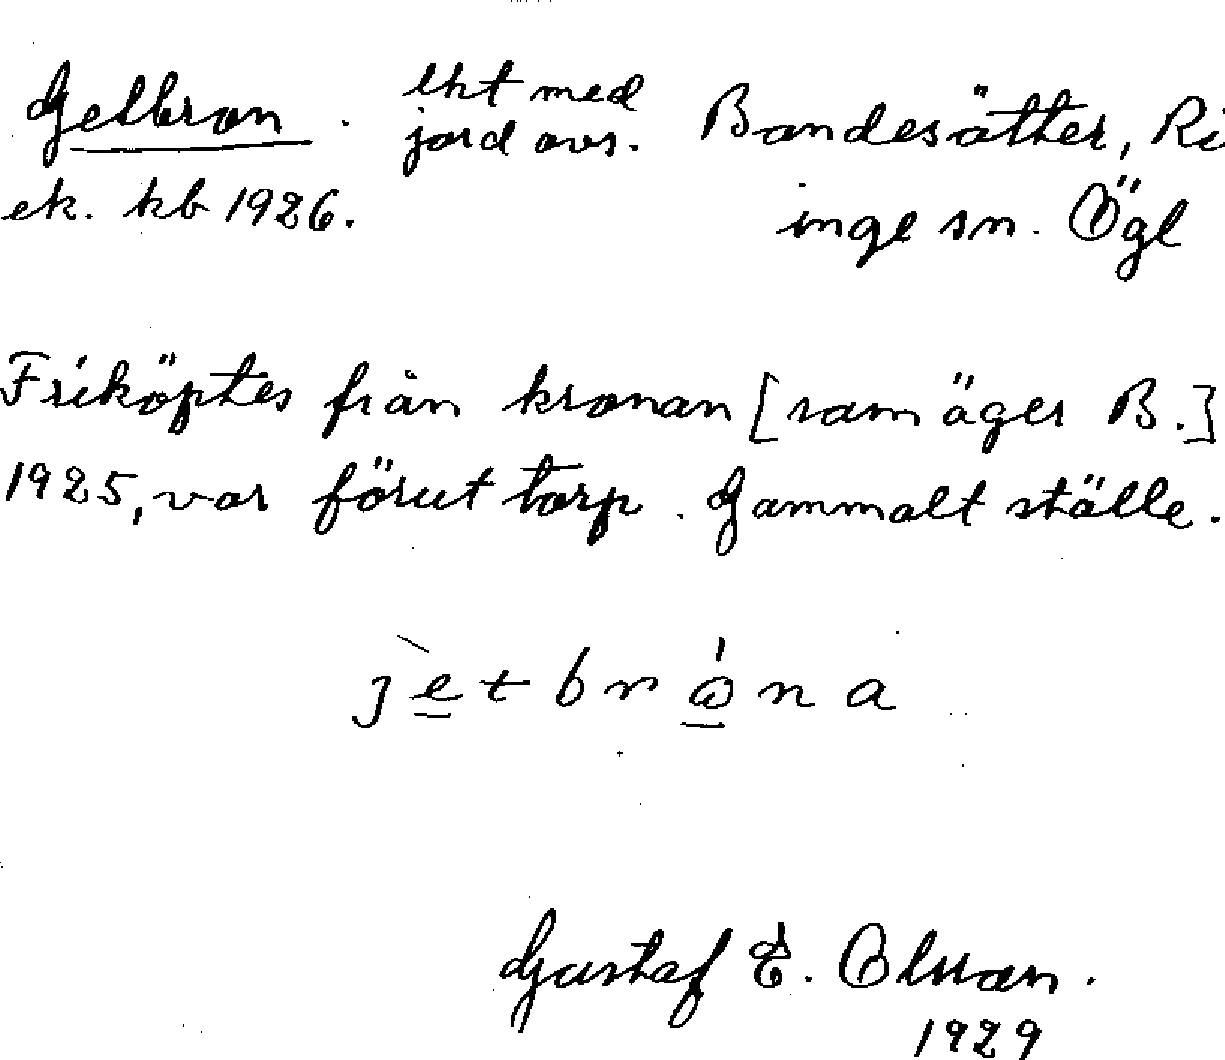 Getbron. lht med jord avs. Bandesätter, Ri
ek. kb 1926. inge sn. Ögl
Friköptes från kronan [som äger B.]
1925, var förut torp. Gammalt ställe.
j è t b r ó n a
Gustaf E. Olsson.
1929